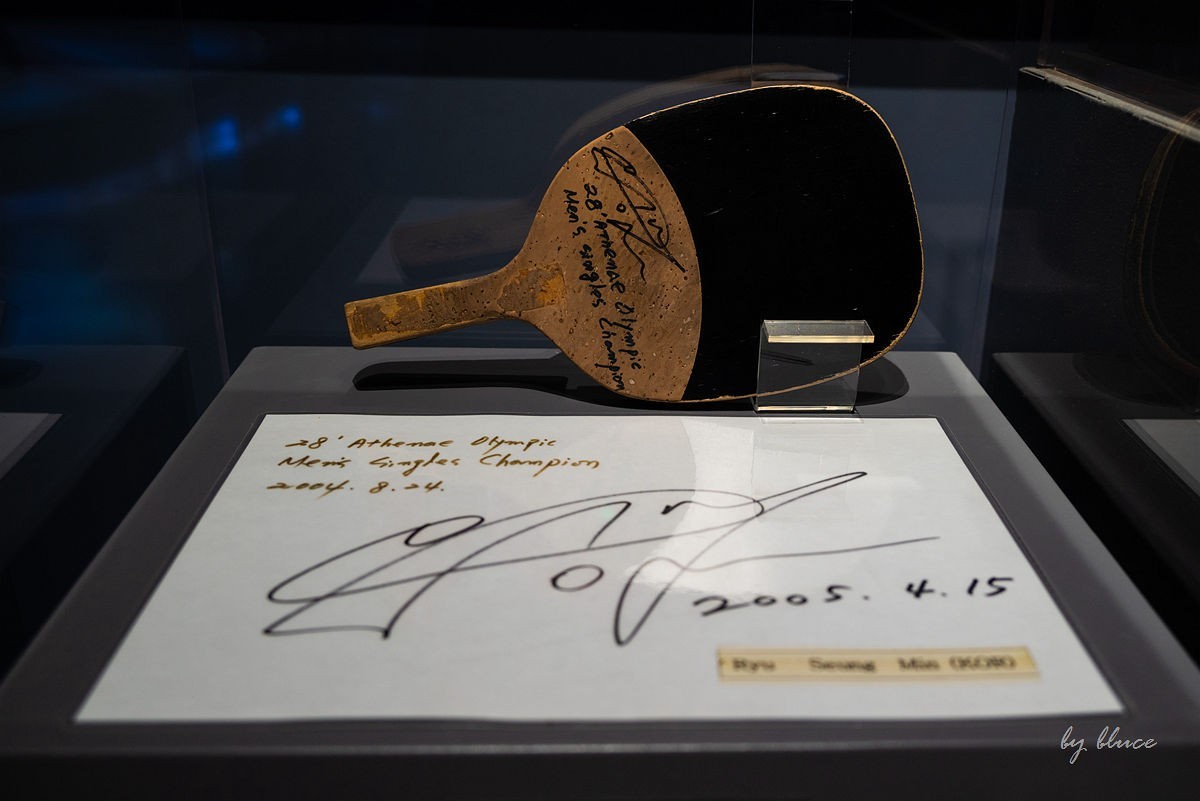 '28 'Athenae Olympic
Men's Singles Champion
28 ' Athenae Olympic
Men's Singles Champion
2004. 8.24.
2005. 4.15
Ryu Seung Min (KOR)
by bluce